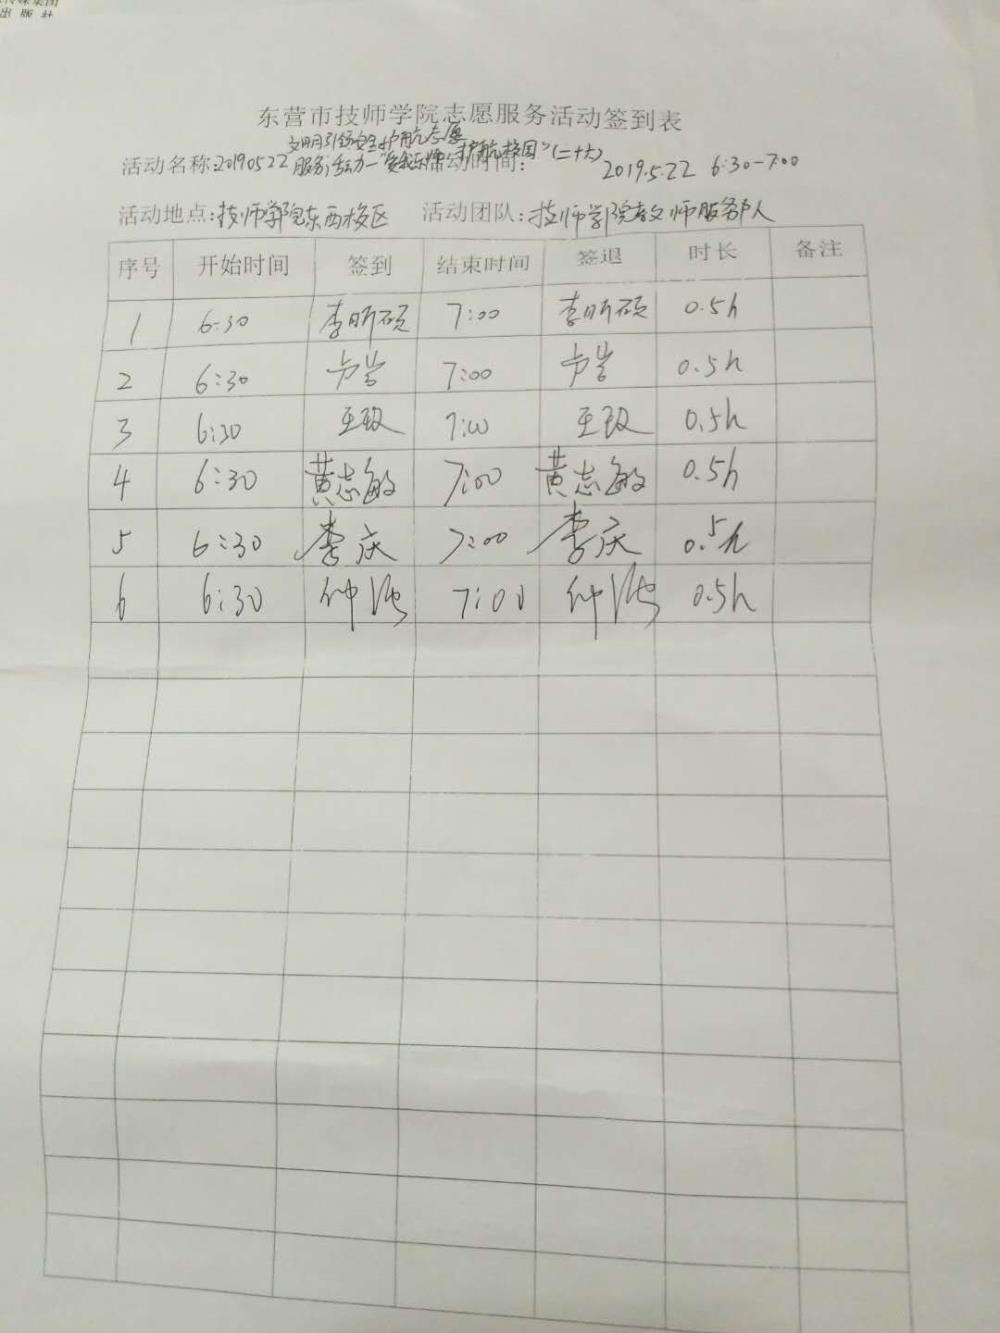 出版社
东营市技师学院志愿服务活动签到表
文明引领安全护航志愿
活动名称:20190522服务活动—"爱我东师 护航校园"(二十六) 活动时间: 2019.5.22 6:30-7:00
活动地点:技师学院东西校区 活动团队:技师学院教师服务队
序号 开始时间 签到 结束时间 签退 时长 备注
1 6:30 李昕硕 7:00 李昕硕 0.5h
2 6:30 7:00 0.5h
3 6:30 王玫 7:00 王玫 0.5h
4 6:30 黄志敏 7:00 黄志敏 0.5h
5 6:30 李庆 7:00 李庆 0.5h
6 6:30 7:00 0.5h